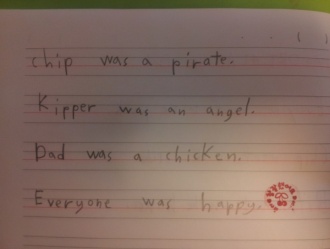 chip was a pirate.
Kipper was an angel.
Dad was a chicken.
Everyone was happy.